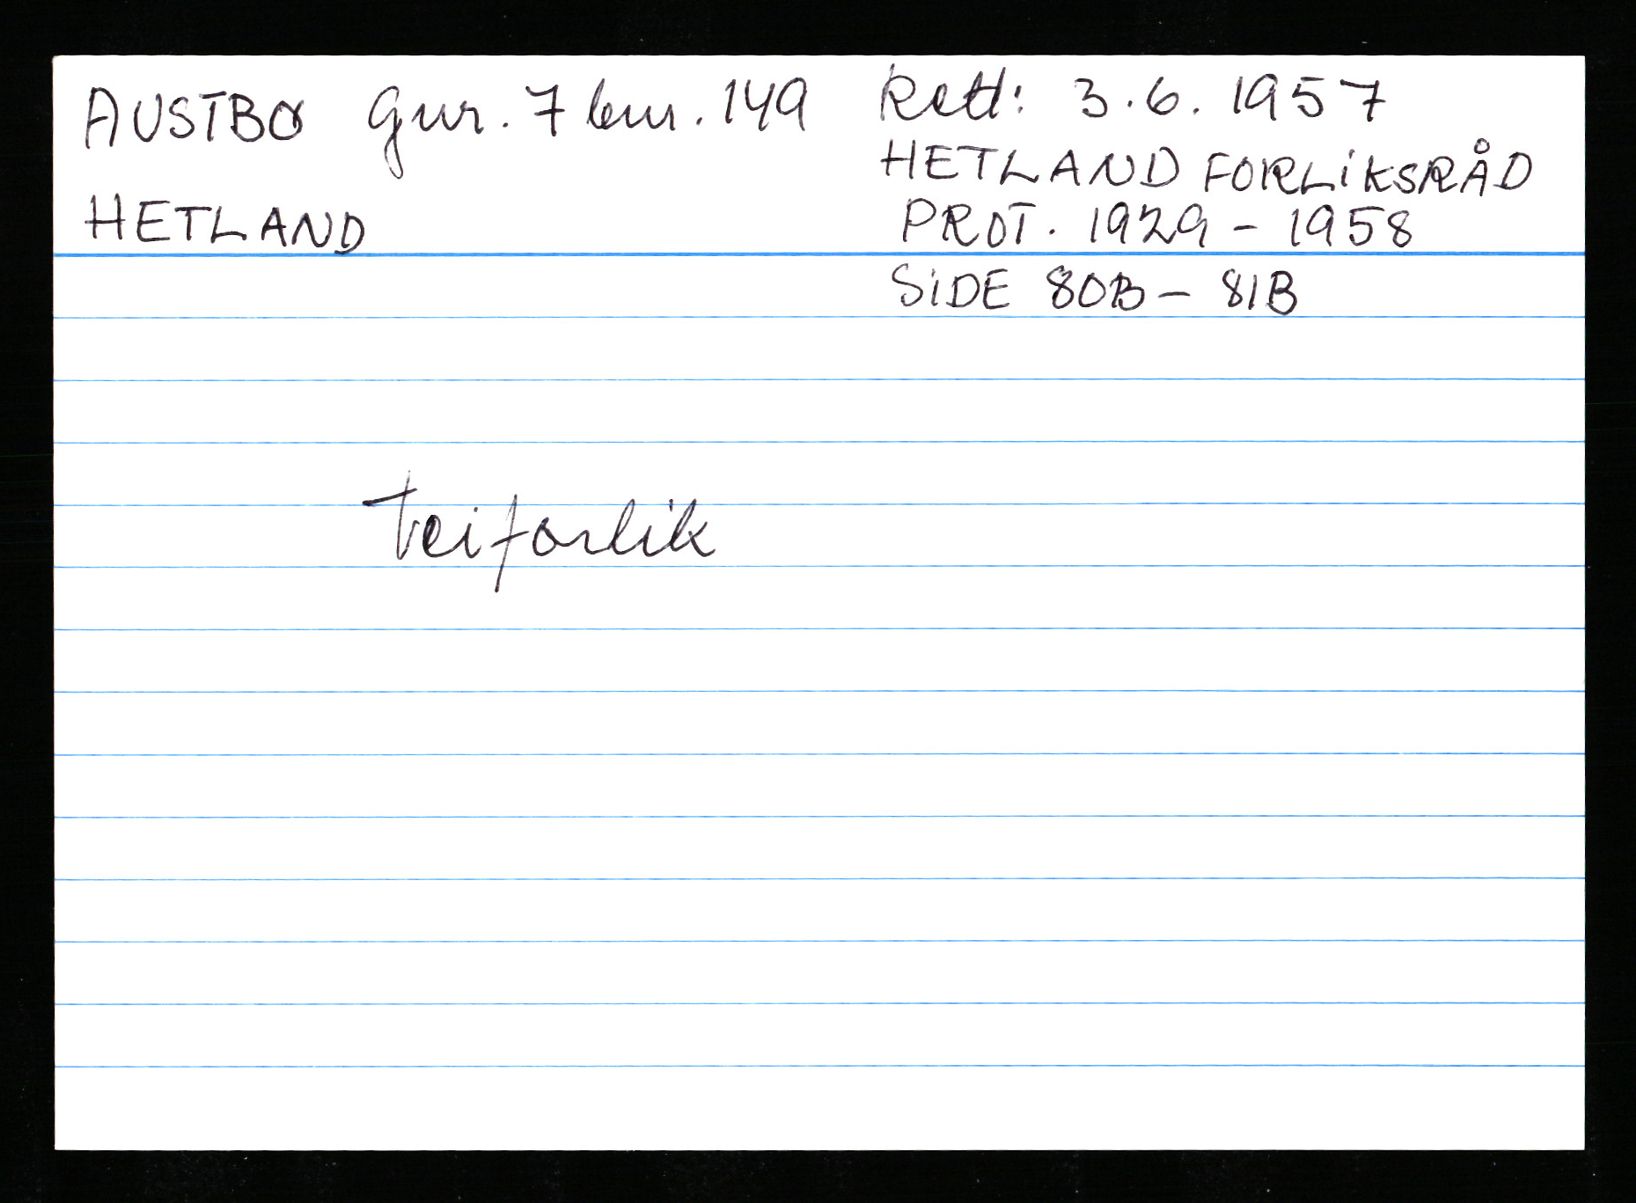 AUSTBØ Gnr. 7 bnr. 149
HETLAND
Rett: 3.6.1957
HETLAND FORLIKSRÅD
PROT. 1929 - 1958
SIDE 80B - 81B
Veiforlik